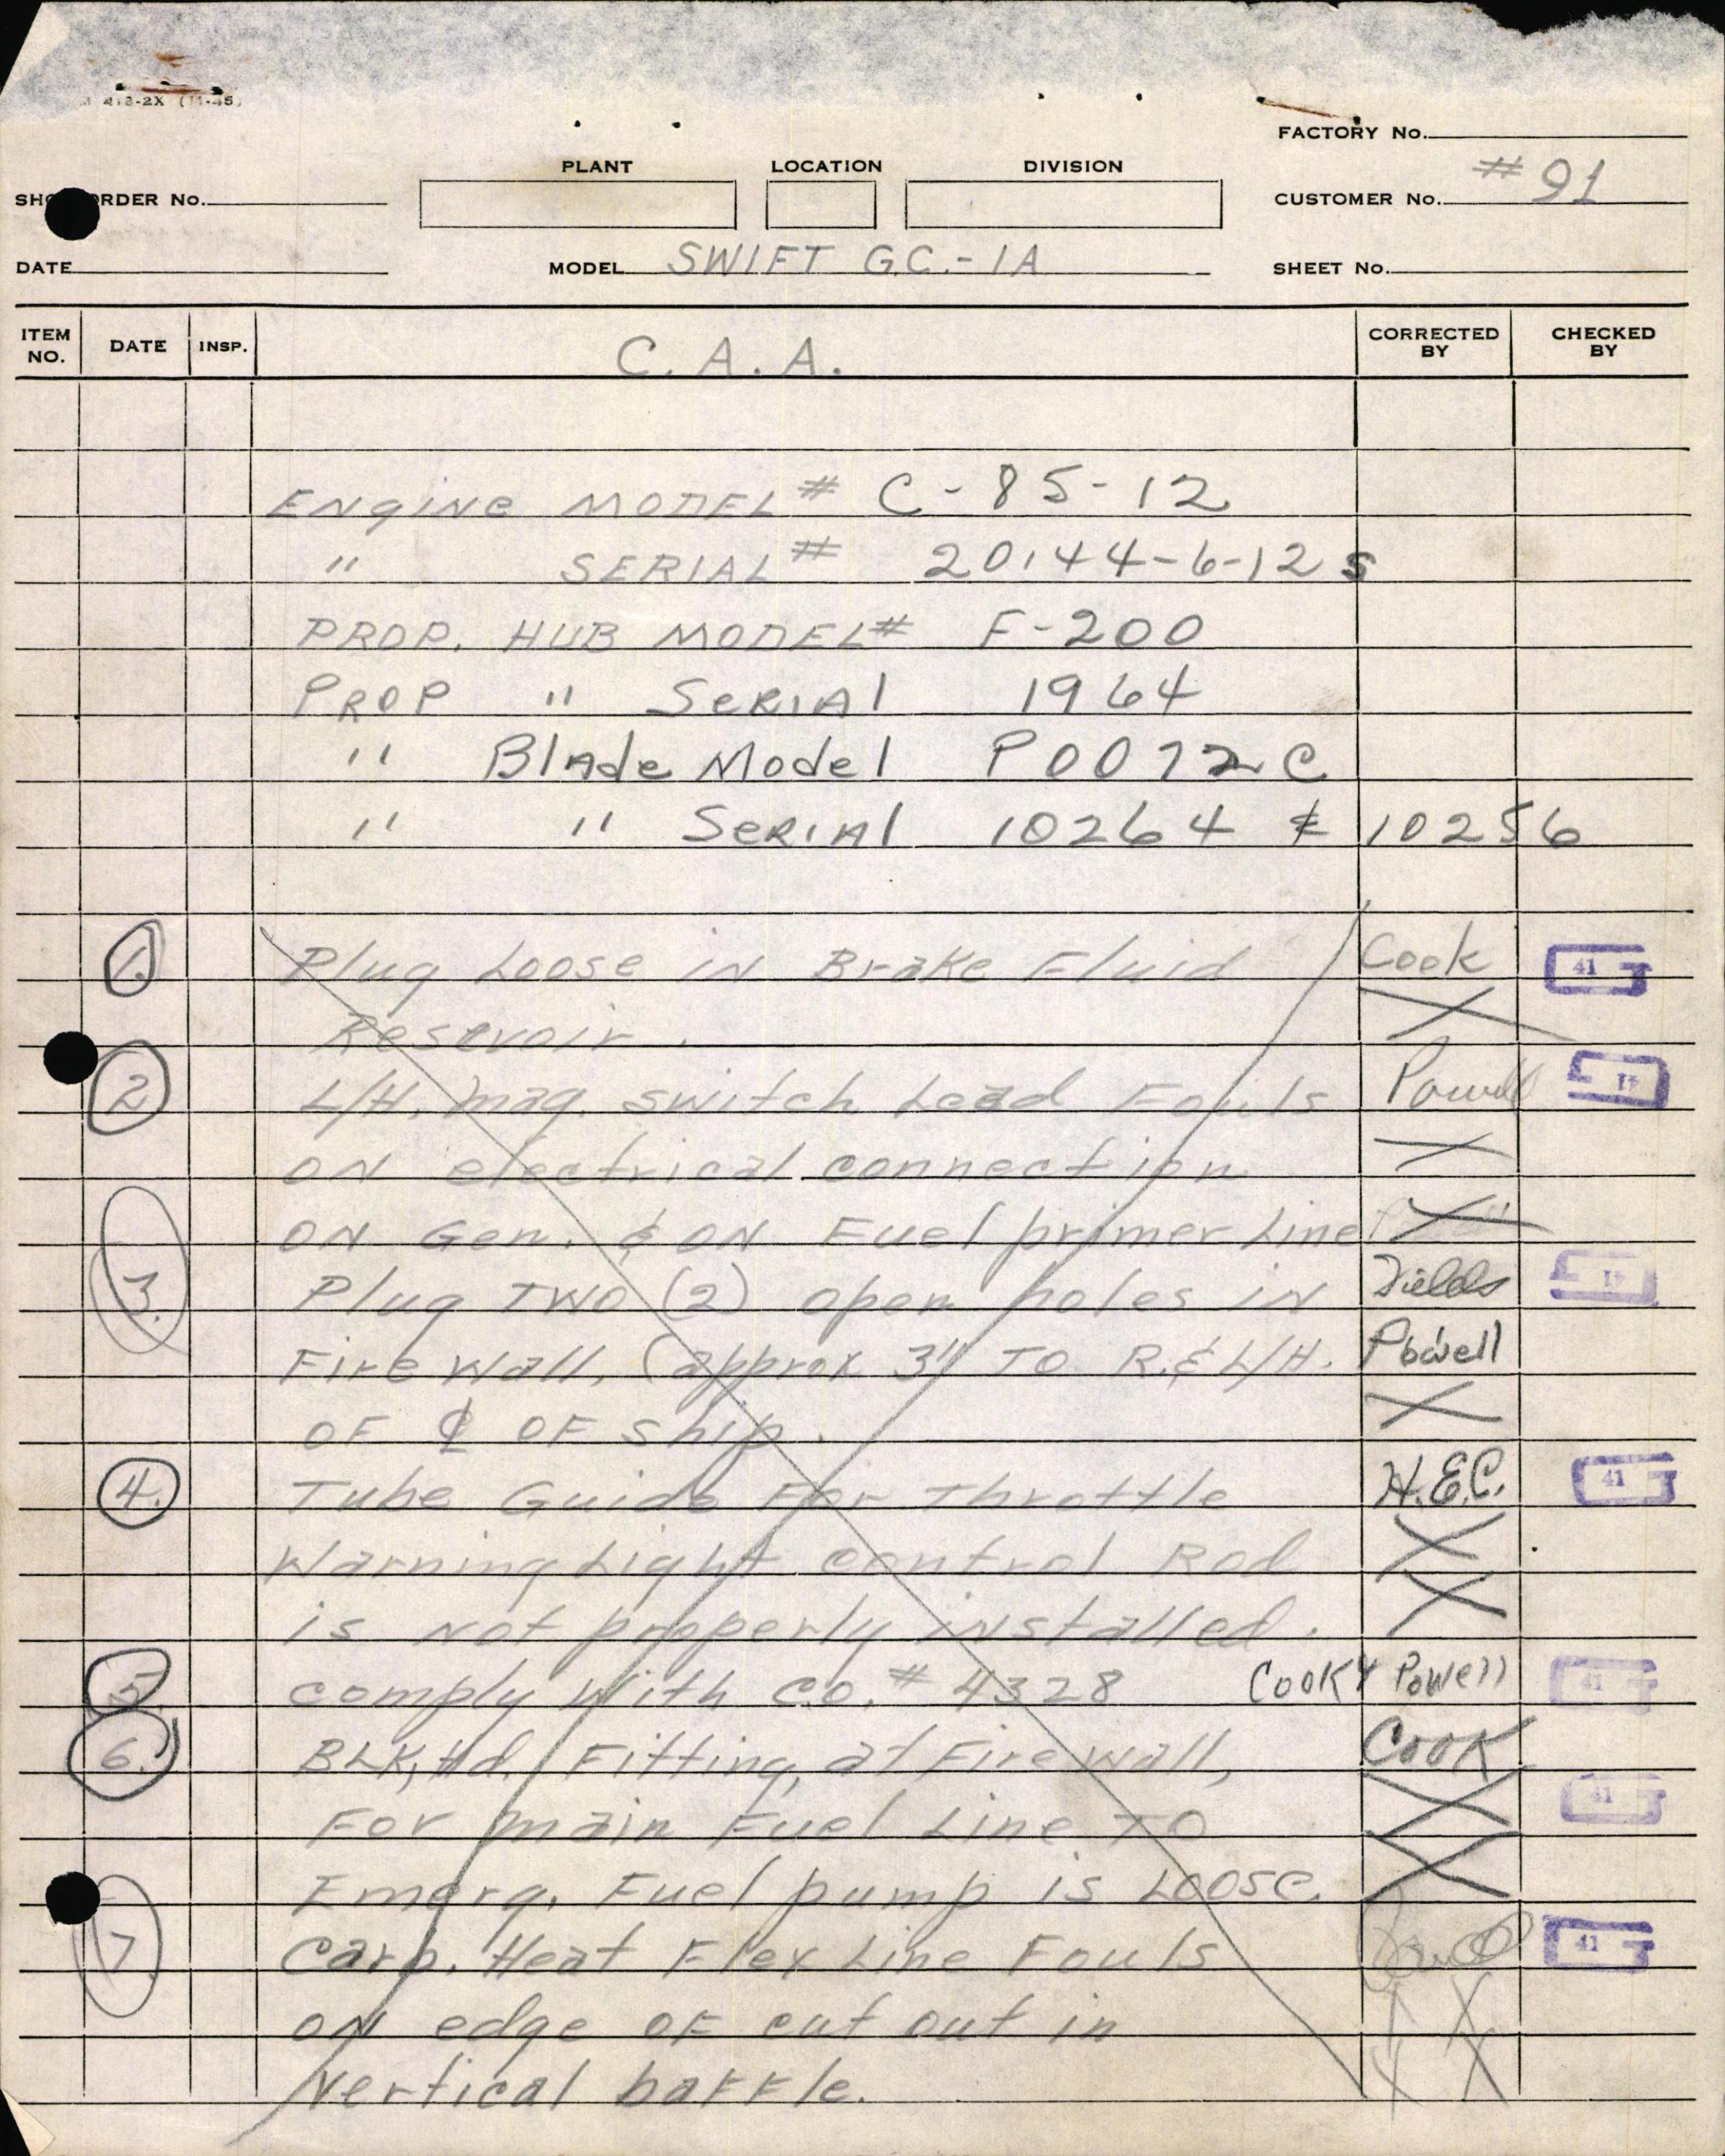 413-2X (11-45)
FACTORY No.
PLANT LOCATION DIVISION
SHOP ORDER No. CUSTOMER No. #91
DATE MODEL SWIFT G.C.-1A SHEET No.
ITEM NO. DATE INSP. C.A.A. CORRECTED BY CHECKED BY
ENgiNe MODEL # C-85-12
" SERIAL # 20144-6-12 S
PROP. HUB MODEL # F-200
PROP " SeRIAl 1964
" BlAde Model P0072C
" " SeRIAl 10264 & 10256
1. Plug Loose in Brake Fluid Cook 41
Resevoir.
2 L/H. mag. switch Lead Fouls Powell 41
ON electrical connection
ON Gen. & ON Fuel primer Line
3. Plug TWO (2) open holes in Fields 41
Fire wall, (approx 3" TO R. & L/H. Powell
OF ℄ OF ship.
4. Tube Guide For Throttle H.E.C. 41
Warning Light control Rod
is not properly installed.
5 comply with C.O. # 4328 COOK & Powell 41
6. BLK,Hd. Fitting, at Fire wall, COOK
For main Fuel Line TO 41
Emerg. Fuel pump is Loose.
7. Carb. Heat Flex Line Fouls 41
on edge OF cut out in
Vertical baffle.